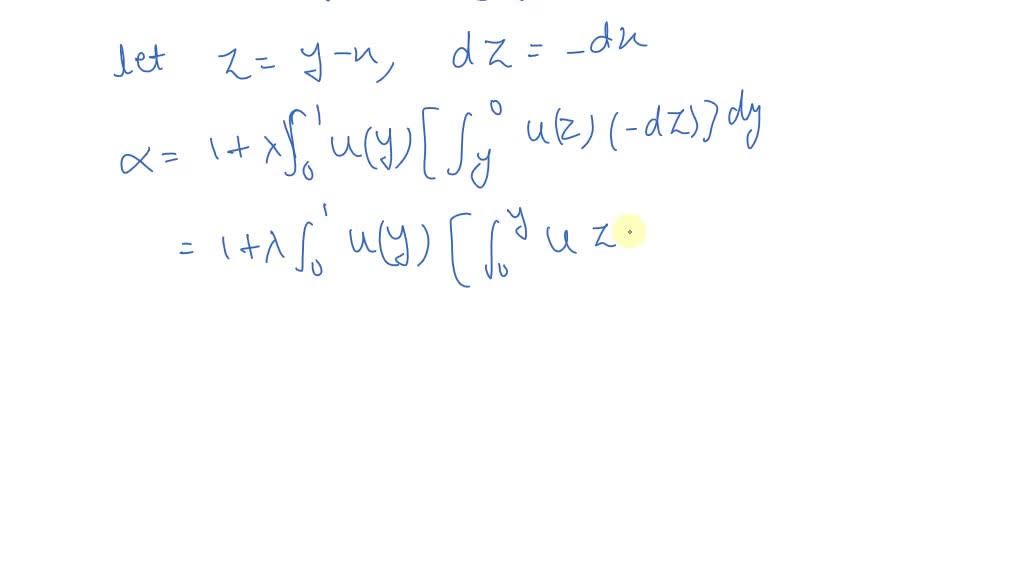 let z = y-x, dz = -dx
α = 1+λ∫₀¹ u(y) [∫_y^0 u(z) (-dz)] dy
= 1+λ∫₀¹ u(y) [∫₀^y u z